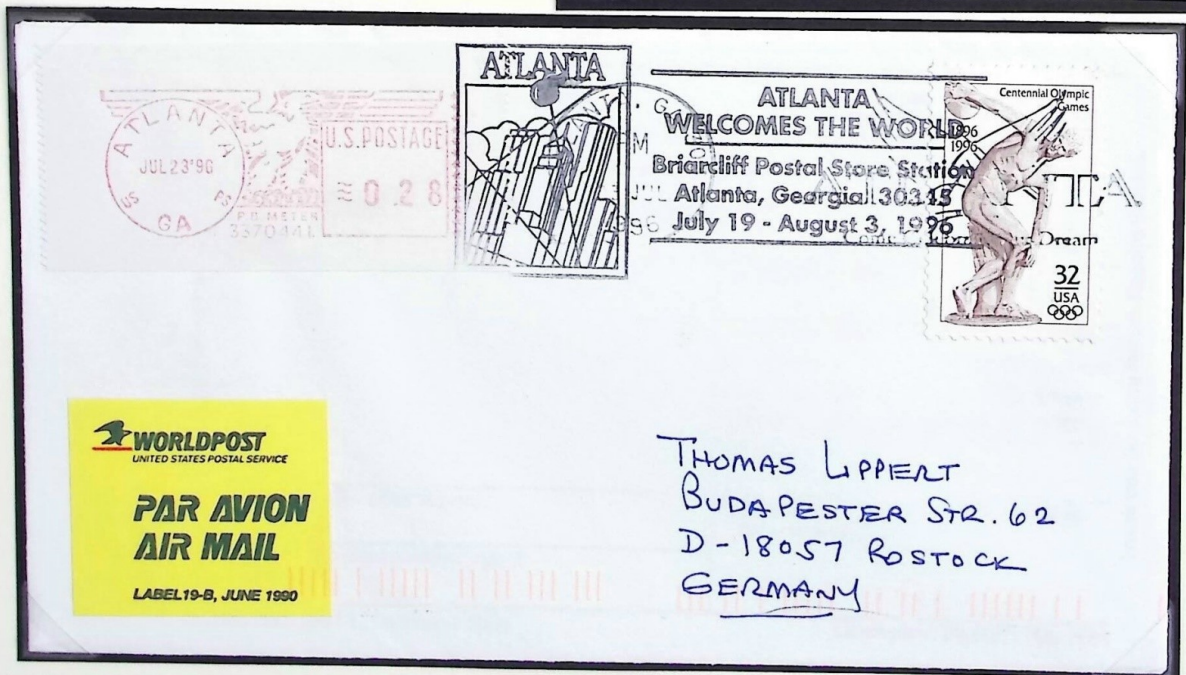 ATLANTA
GA
JUL 23'96
P.B. METER
3370441
U.S. POSTAGE
0.28
ATLANTA
ATLANTA
WELCOMES THE WORLD
Briarcliff Postal Store Station
Atlanta, Georgia 30345
July 19 - August 3, 1996
JUL
1996
Centennial Olympic
Games
1996
1996
32
USA
Dream
WORLDPOST
UNITED STATES POSTAL SERVICE
PAR AVION
AIR MAIL
LABEL 19-B, JUNE 1990
THOMAS LIPPERT
BUDAPESTER STR. 62
D-18057 ROSTOCK
GERMANY